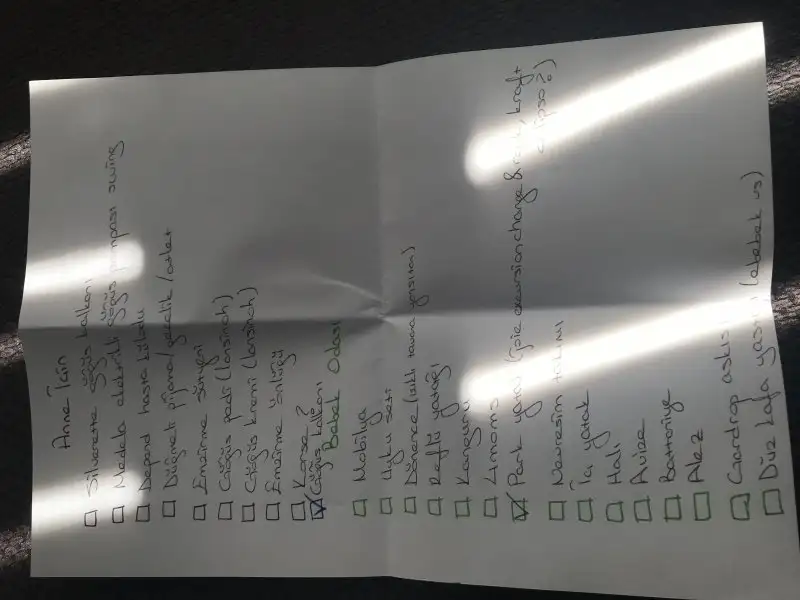 Anne İçin
Silverette göğüs kalkanı
Medela elektrikli göğüs pompası swing
Depend hasta külodu
Düğmeli pijama/gecelik/atlet
Emzirme sütyeni
Göğüs pedi (lansinoh)
Göğüs kremi (lansinoh)
Emzirme önlüğü
Korse?
Göğüs kalkanı
Bebek Odası
Mobilya
Uyku seti
Dönence
Reflü yatağı
Kanguru
4moms
Park yatak (joie excursion change & kraft
Nevresim takımı
İç yatak
Halı
Avize
Battaniye
Alez
Gardrop askısı
Düz kafa yastığı (ebebek vs)